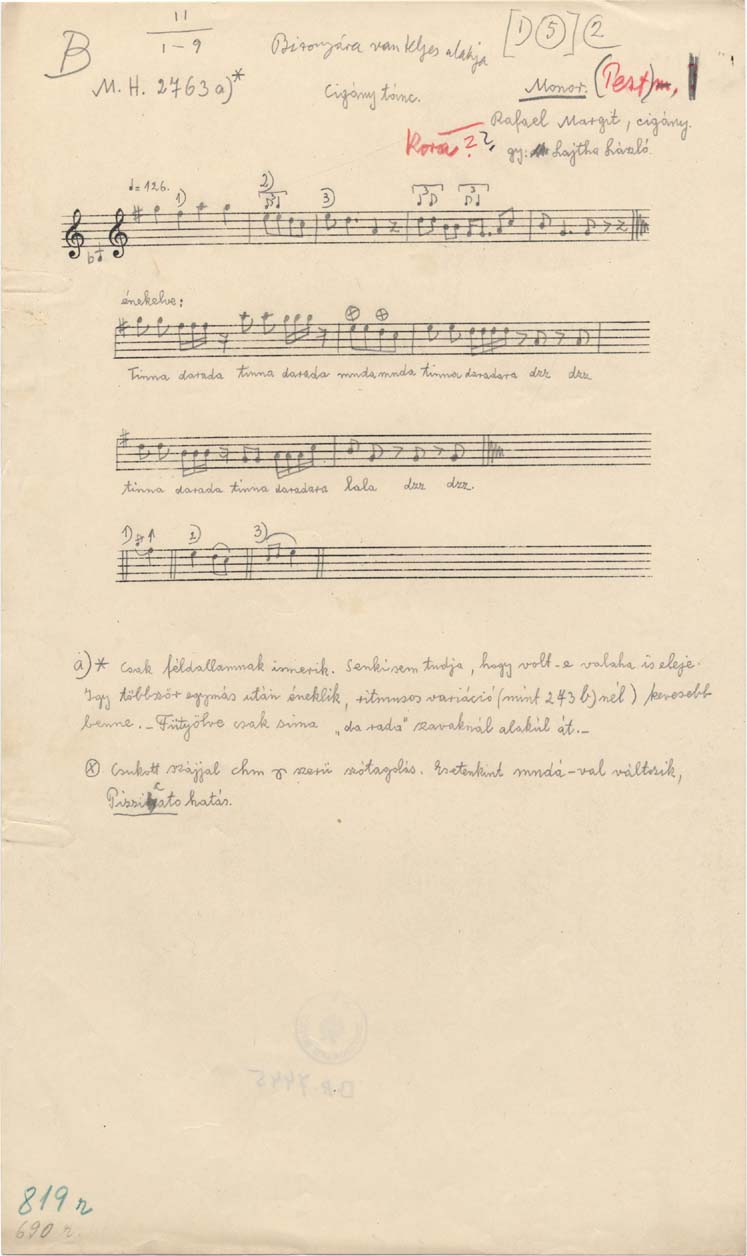 B
11
1-9
Bizonyára van teljes alakja
[D⑤]②
M. H. 2763 a)*
Cigány tánc.
Monor. (Pest) m.
Rafael Margit, cigány.
Kora ? ?
gy: Lajtha László.
= 126.
1)
2)
3)
3
3
énekelve:
Tinna darada tinna darada mndamnda tinna daradara dzz dzz
tinna darada tinna daradara lala dzz dzz.
1)
2)
3)
a)* Csak féldallamnak ismerik. Senkisem tudja, hogy volt-e valaha is eleje.
Igy többször egymás után éneklik, ritmusos variáció (mint 243 b) nél) kevesebb
benne. - Fütyölve csak sima „da rada" szavaknál alakúl át. -
⊗ Csukott szájjal chm szerü szótagolás. Esetenkint mndá-val változik,
Pizzicato hatás.
819 r
690 r.